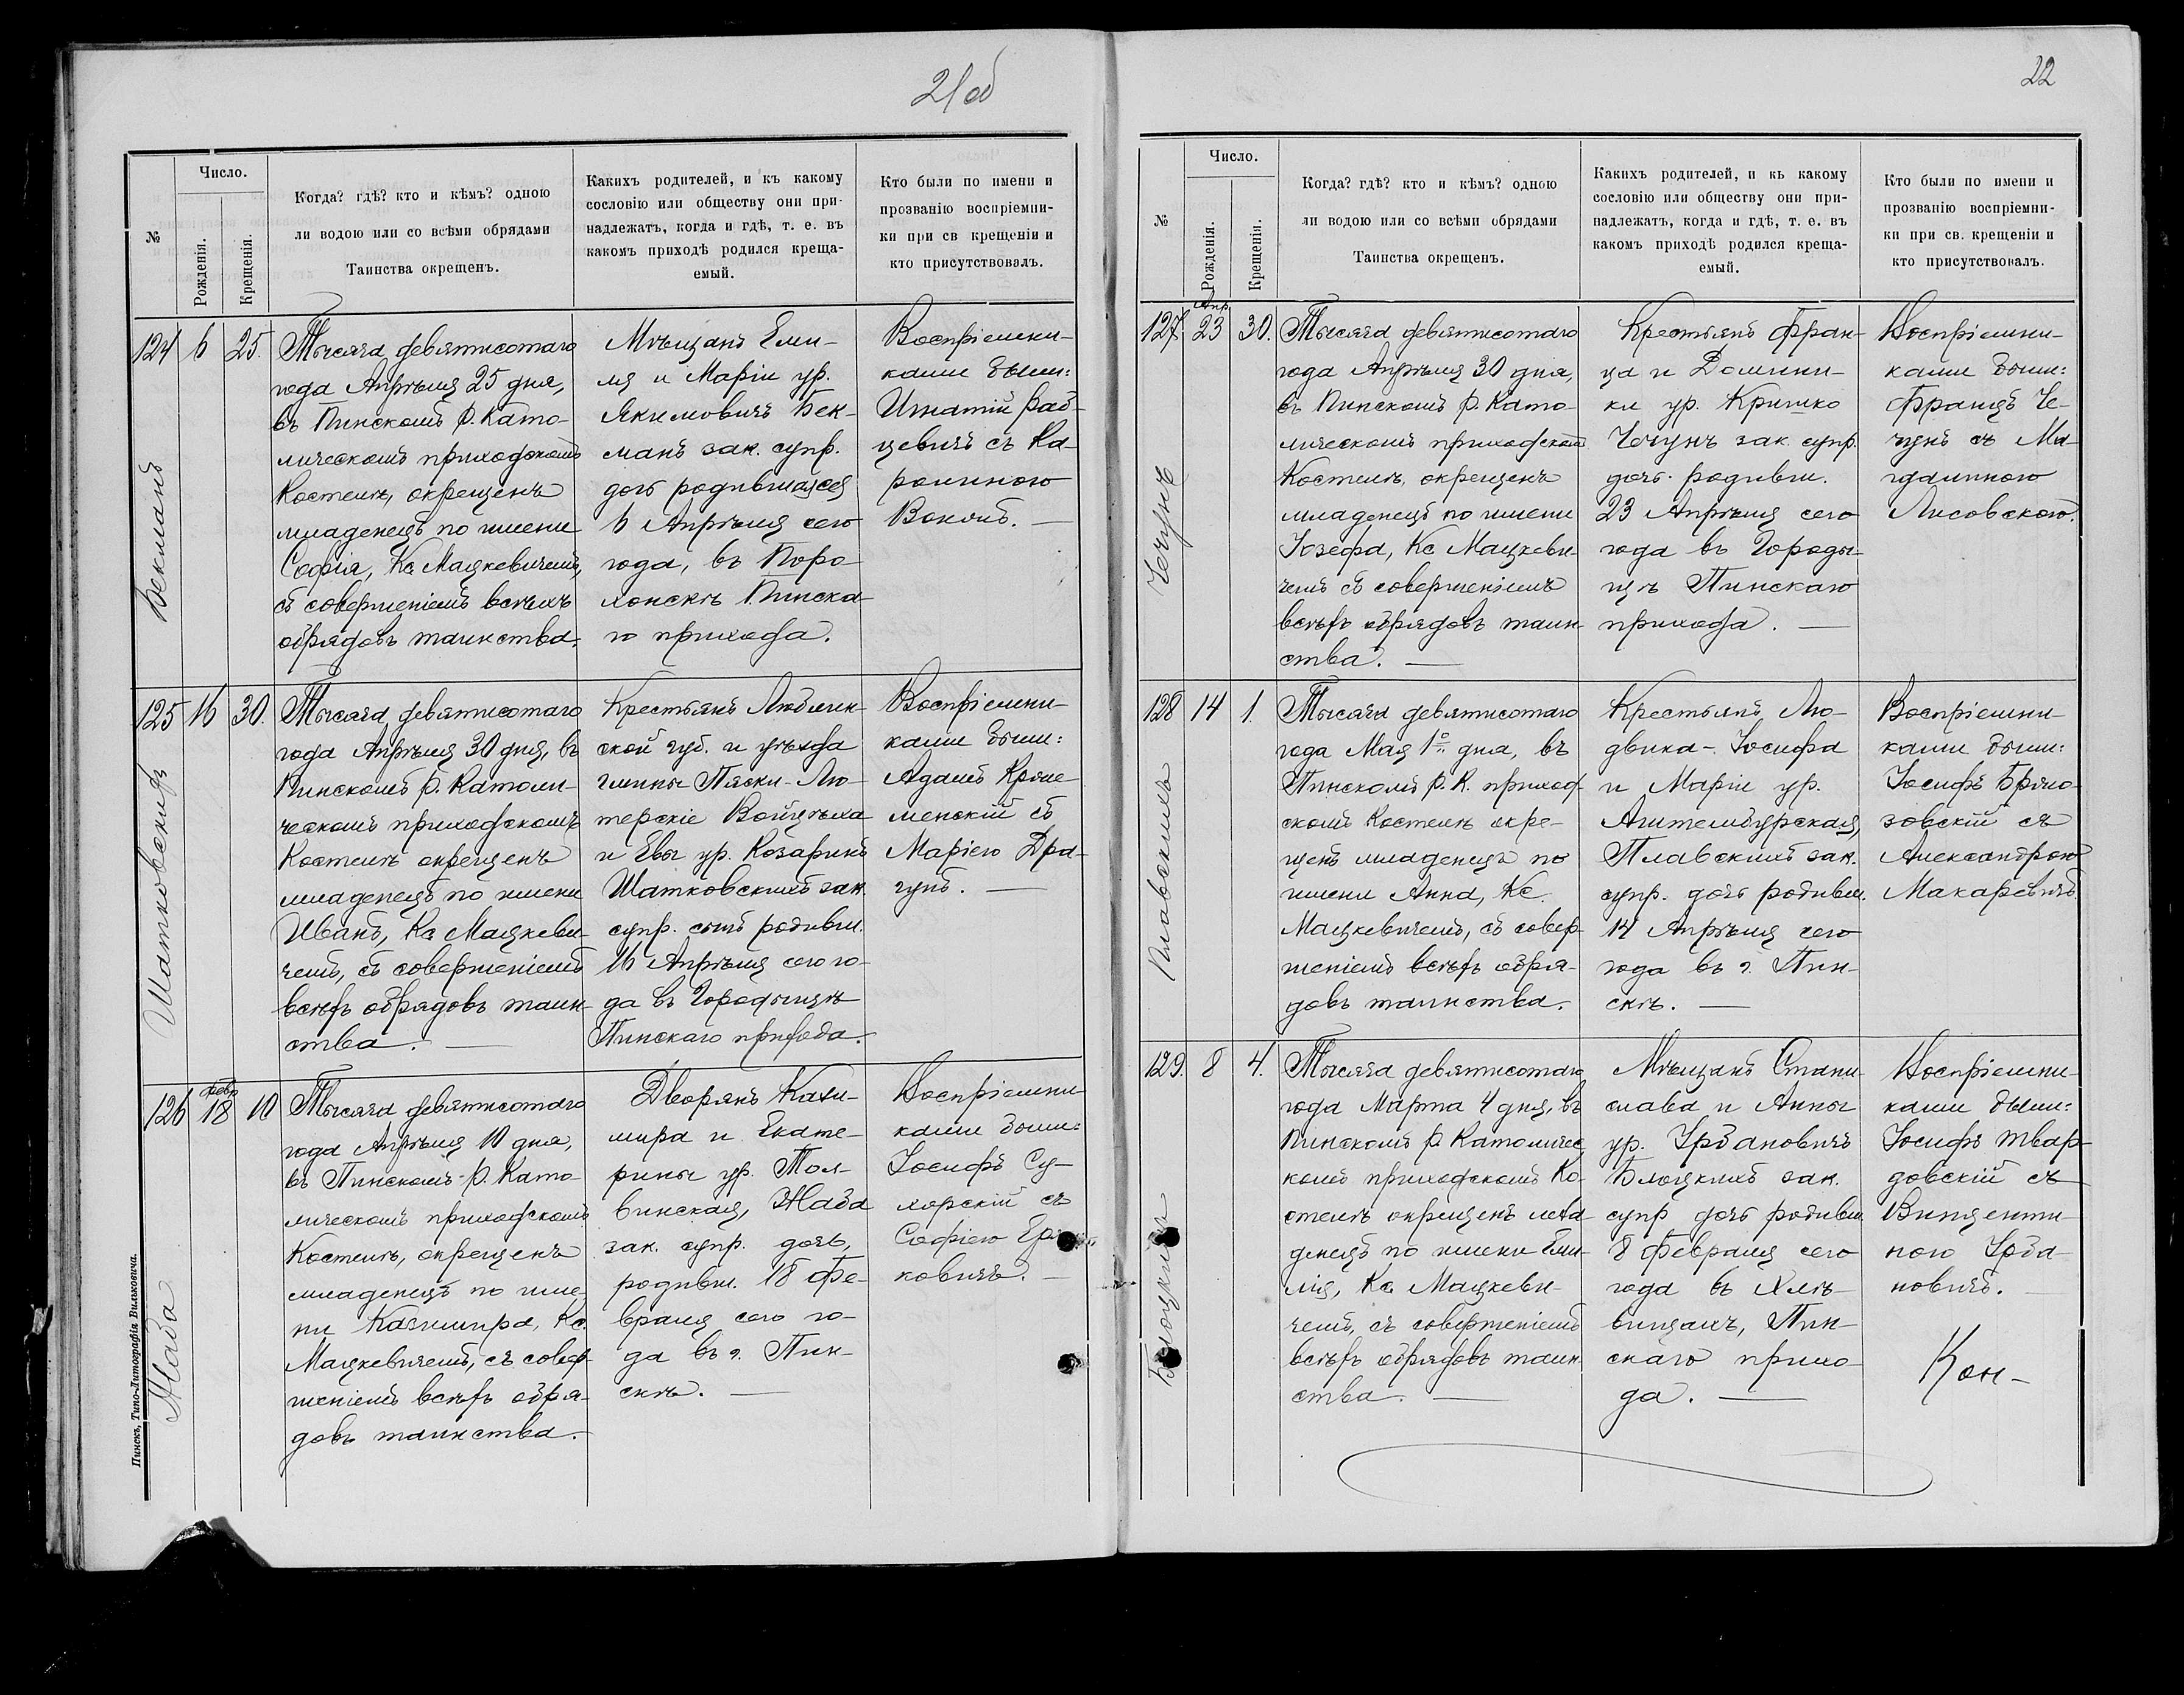 21 об
№
Число.
Рожденія.
Крещенія.
Когда? гдѣ? кто и кѣмъ? одною
ли водою или со всѣми обрядами
Таинства окрещенъ.
Какихъ родителей, и къ какому
сословію или обществу они при-
надлежатъ, когда и гдѣ, т. е. въ
какомъ приходѣ родился креща-
емый.
Кто были по имени и
прозванію воспріемни-
ки при св крещеніи и
кто присутствовалъ.
124
6
25.
Бекманъ
Тысяча девятисотаго
года Апрѣля 25 дня,
въ Пинскомъ Р. Като-
лическомъ приходскомъ
Костелѣ, окрещенъ
младенецъ по имени
Софія, Кс. Мацкевичемъ,
съ совершеніемъ всѣхъ
обрядовъ таинства.
Мѣщанъ Еми-
ля и Маріи ур.
Якимовичъ Бек-
манъ зак. супр.
дочь родившаяся
6 Апрѣля сего
года, въ Поро-
хонскѣ Пинска-
го прихода.
Воспріемни-
ками были:
Игнатій Рад-
цевичъ съ Ка-
ролиною
125
16
30.
Шатковскихъ
Тысяча девятисотаго
года Апрѣля 30 дня, въ
Пинскомъ Р. Католи-
ческомъ приходскомъ
Костелѣ окрещенъ
младенецъ по имени
Иванъ, Кс. Мацкеви-
чемъ, съ совершеніемъ
всѣхъ обрядовъ таин-
ства. —
Крестьянъ Люблин-
ской губ. и уѣзда
гмины Пяски-Лю-
терскіе Войцѣха
и Евы ур. Козарикъ
Шатковскихъ зак.
супр. сынъ родивш.
16 Апрѣля сего го-
да въ Городищѣ
Пинскаго прихода.
Воспріемни-
ками были:
Адамъ Креме-
менскій съ
Маріею Дра-
гунъ. —
126
Февр.
18
10
Жаба
Тысяча девятисотаго
года Апрѣля 10 дня,
въ Пинскомъ Р. Като-
лическомъ приходскомъ
Костелѣ, окрещенъ
младенецъ по име-
ни Казимира, Кс.
Мацкевичемъ, съ совер-
шеніемъ всѣхъ обря-
довъ таинства.
Дворянъ Кази-
мира и Екате-
рины ур. Пол-
винская, Жаба
зак. супр. дочь,
родивш. 18 Фе-
враля сего го-
да въ г. Пин-
скѣ. —
Воспріемни-
ками были:
Іосифъ Су-
хорскій съ
Софіею
ковичъ. —
Пинскъ, Типо-Литографія Вильковича.
22
№
Число.
Рожденія.
Крещенія.
Когда? гдѣ? кто и кѣмъ? одною
ли водою или со всѣми обрядами
Таинства окрещенъ.
Какихъ родителей, и къ какому
сословію или обществу они при-
надлежатъ, когда и гдѣ, т. е. въ
какомъ приходѣ родился креща-
емый.
Кто были по имени и
прозванію воспріемни-
ки при св. крещеніи и
кто присутствовалъ.
127.
Апр.
23
30.
Чечунъ
Тысяча девятисотаго
года Апрѣля 30 дня,
въ Пинскомъ Р. Като-
лическомъ приходскомъ
Костелѣ, окрещенъ
младенецъ по имени
Юзефа, Кс Мацкеви-
чемъ съ совершеніемъ
всѣхъ обрядовъ таин-
ства. —
Крестьянъ Фран-
ца и Домини-
ки ур. Кришко
Чечунъ зак. супр.
дочь родивш.
23 Апрѣля сего
года въ Городи-
щѣ Пинскаго
прихода. —
Воспріемни-
ками были:
Францъ Че-
чунъ съ Ма-
гдалиною
Лисовскою.
128
14
1.
Плавскихъ
Тысяча девятисотаго
года Мая 1го дня, въ
Пинскомъ Р. К. приход-
скомъ Костелѣ окре-
щенъ младенецъ по
имени Анна, Кс.
Мацкевичемъ, съ совер-
шеніемъ всѣхъ обря-
довъ таинства.
Крестьянъ Лю-
двика-Іосифа
и Маріи ур.
Плавскихъ зак.
супр. дочь родивш.
14 Апрѣля сего
года въ г. Пин-
скѣ. —
Воспріемни-
ками были:
Іосифъ Бржо-
зовскій съ
Александрою
Макаревичъ.
129.
8
4.
Блоцкихъ
Тысяча девятисотаго
года Марта 4 дня, въ
Пинскомъ Р Католичес-
комъ приходскомъ Ко-
стелѣ окрещенъ мла-
денецъ по имени Еми-
лія, Кс. Мацкеви-
чемъ, съ совершеніемъ
всѣхъ обрядовъ таин-
ства. —
Мѣщанъ Стани-
слава и Анны
ур. Урбановичъ
Блоцкихъ зак.
супр дочь родивш.
8 Февраля сего
года въ Хлѣ-
вищахъ, Пин-
скаго прихо-
да. —
Воспріемни-
ками были:
Іосифъ Твар-
довскій съ
Винценти-
ною Урба-
новичъ. —
Кон-